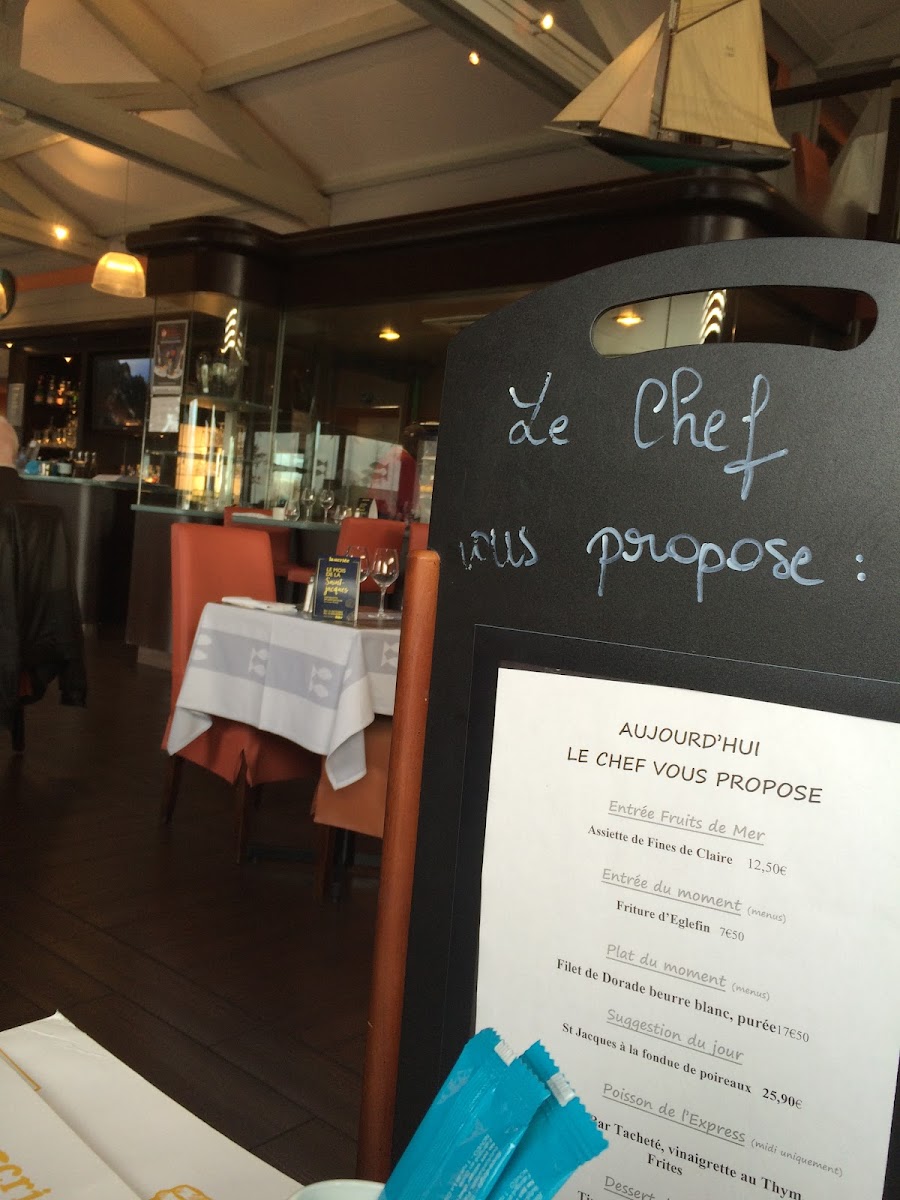 Le Chef
vous propose :
AUJOURD'HUI
LE CHEF VOUS PROPOSE
Entrée Fruits de Mer
Assiette de Fines de Claire 12,50€
Entrée du moment (menus)
Friture d'Eglefin 7€50
Plat du moment (menus)
Filet de Dorade beurre blanc, purée17€50
Suggestion du jour
St Jacques à la fondue de poireaux 25,90€
Poisson de l'Express (midi uniquement)
Bar Tacheté, vinaigrette au Thym
Frites
Dessert
LE MOIS
DE LA
Saint-
Jacques